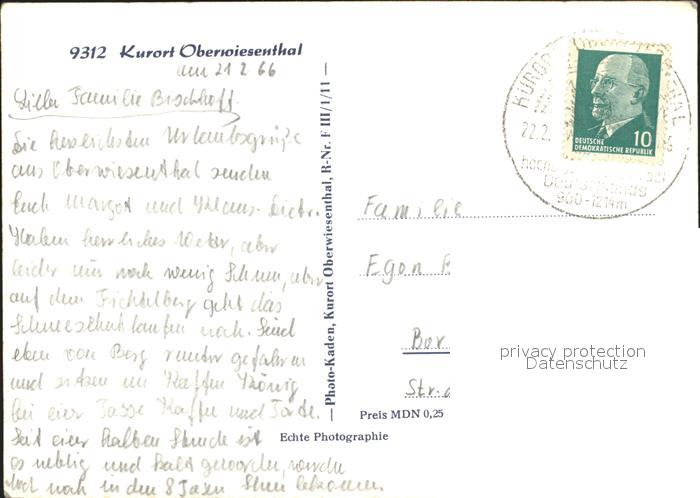 9312 Kurort Oberwiesenthal
am 21 2 66
Liebe Familie Bischhoff.
Die herzlichsten Urlaubsgrüße
aus Oberwiesenthal senden
Euch Margot und Klaus-Dieter.
Haben herrliches Wetter, aber
leider nur noch wenig Schnee, aber
auf dem Fichtelberg geht das
Schneeschuhlaufen noch. Sind
eben vom Berg runter gefahren
und sitzen im Kaffee König
bei einer Tasse Kaffee und Torte.
Seit einer halben Stunde ist
es neblig und kalt geworden, werden
doch noch in den 8 Tagen Schnee bekommen.
— Photo-Kaden, Kurort Oberwiesenthal, R-Nr. F III/1/11 —
Preis MDN 0,25
Echte Photographie
KURORT THAL
22.2. 6
900-1214m
DEUTSCHE
DEMOKRATISCHE REPUBLIK
10
Familie
Egon
Bor
Str.
privacy protection
Datenschutz